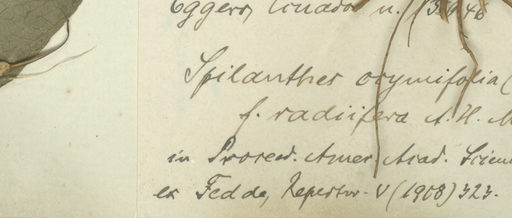 Eggers, Ecuador n.
Spilanthes ocymifolia (
f. radiifera A. H. M
in Proceed. Amer. Acad. Scien
ex Fedde, Repertor. V (1908) 323.